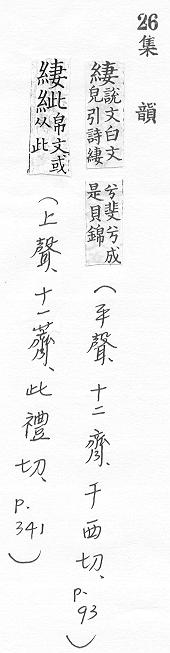 26
集韻
緀說文白文皃引詩緀兮斐兮成是貝錦(平聲、十二齊、千西切、p.93)
緀紪帛文或从此(上聲、十一薺、此禮切、p.341)